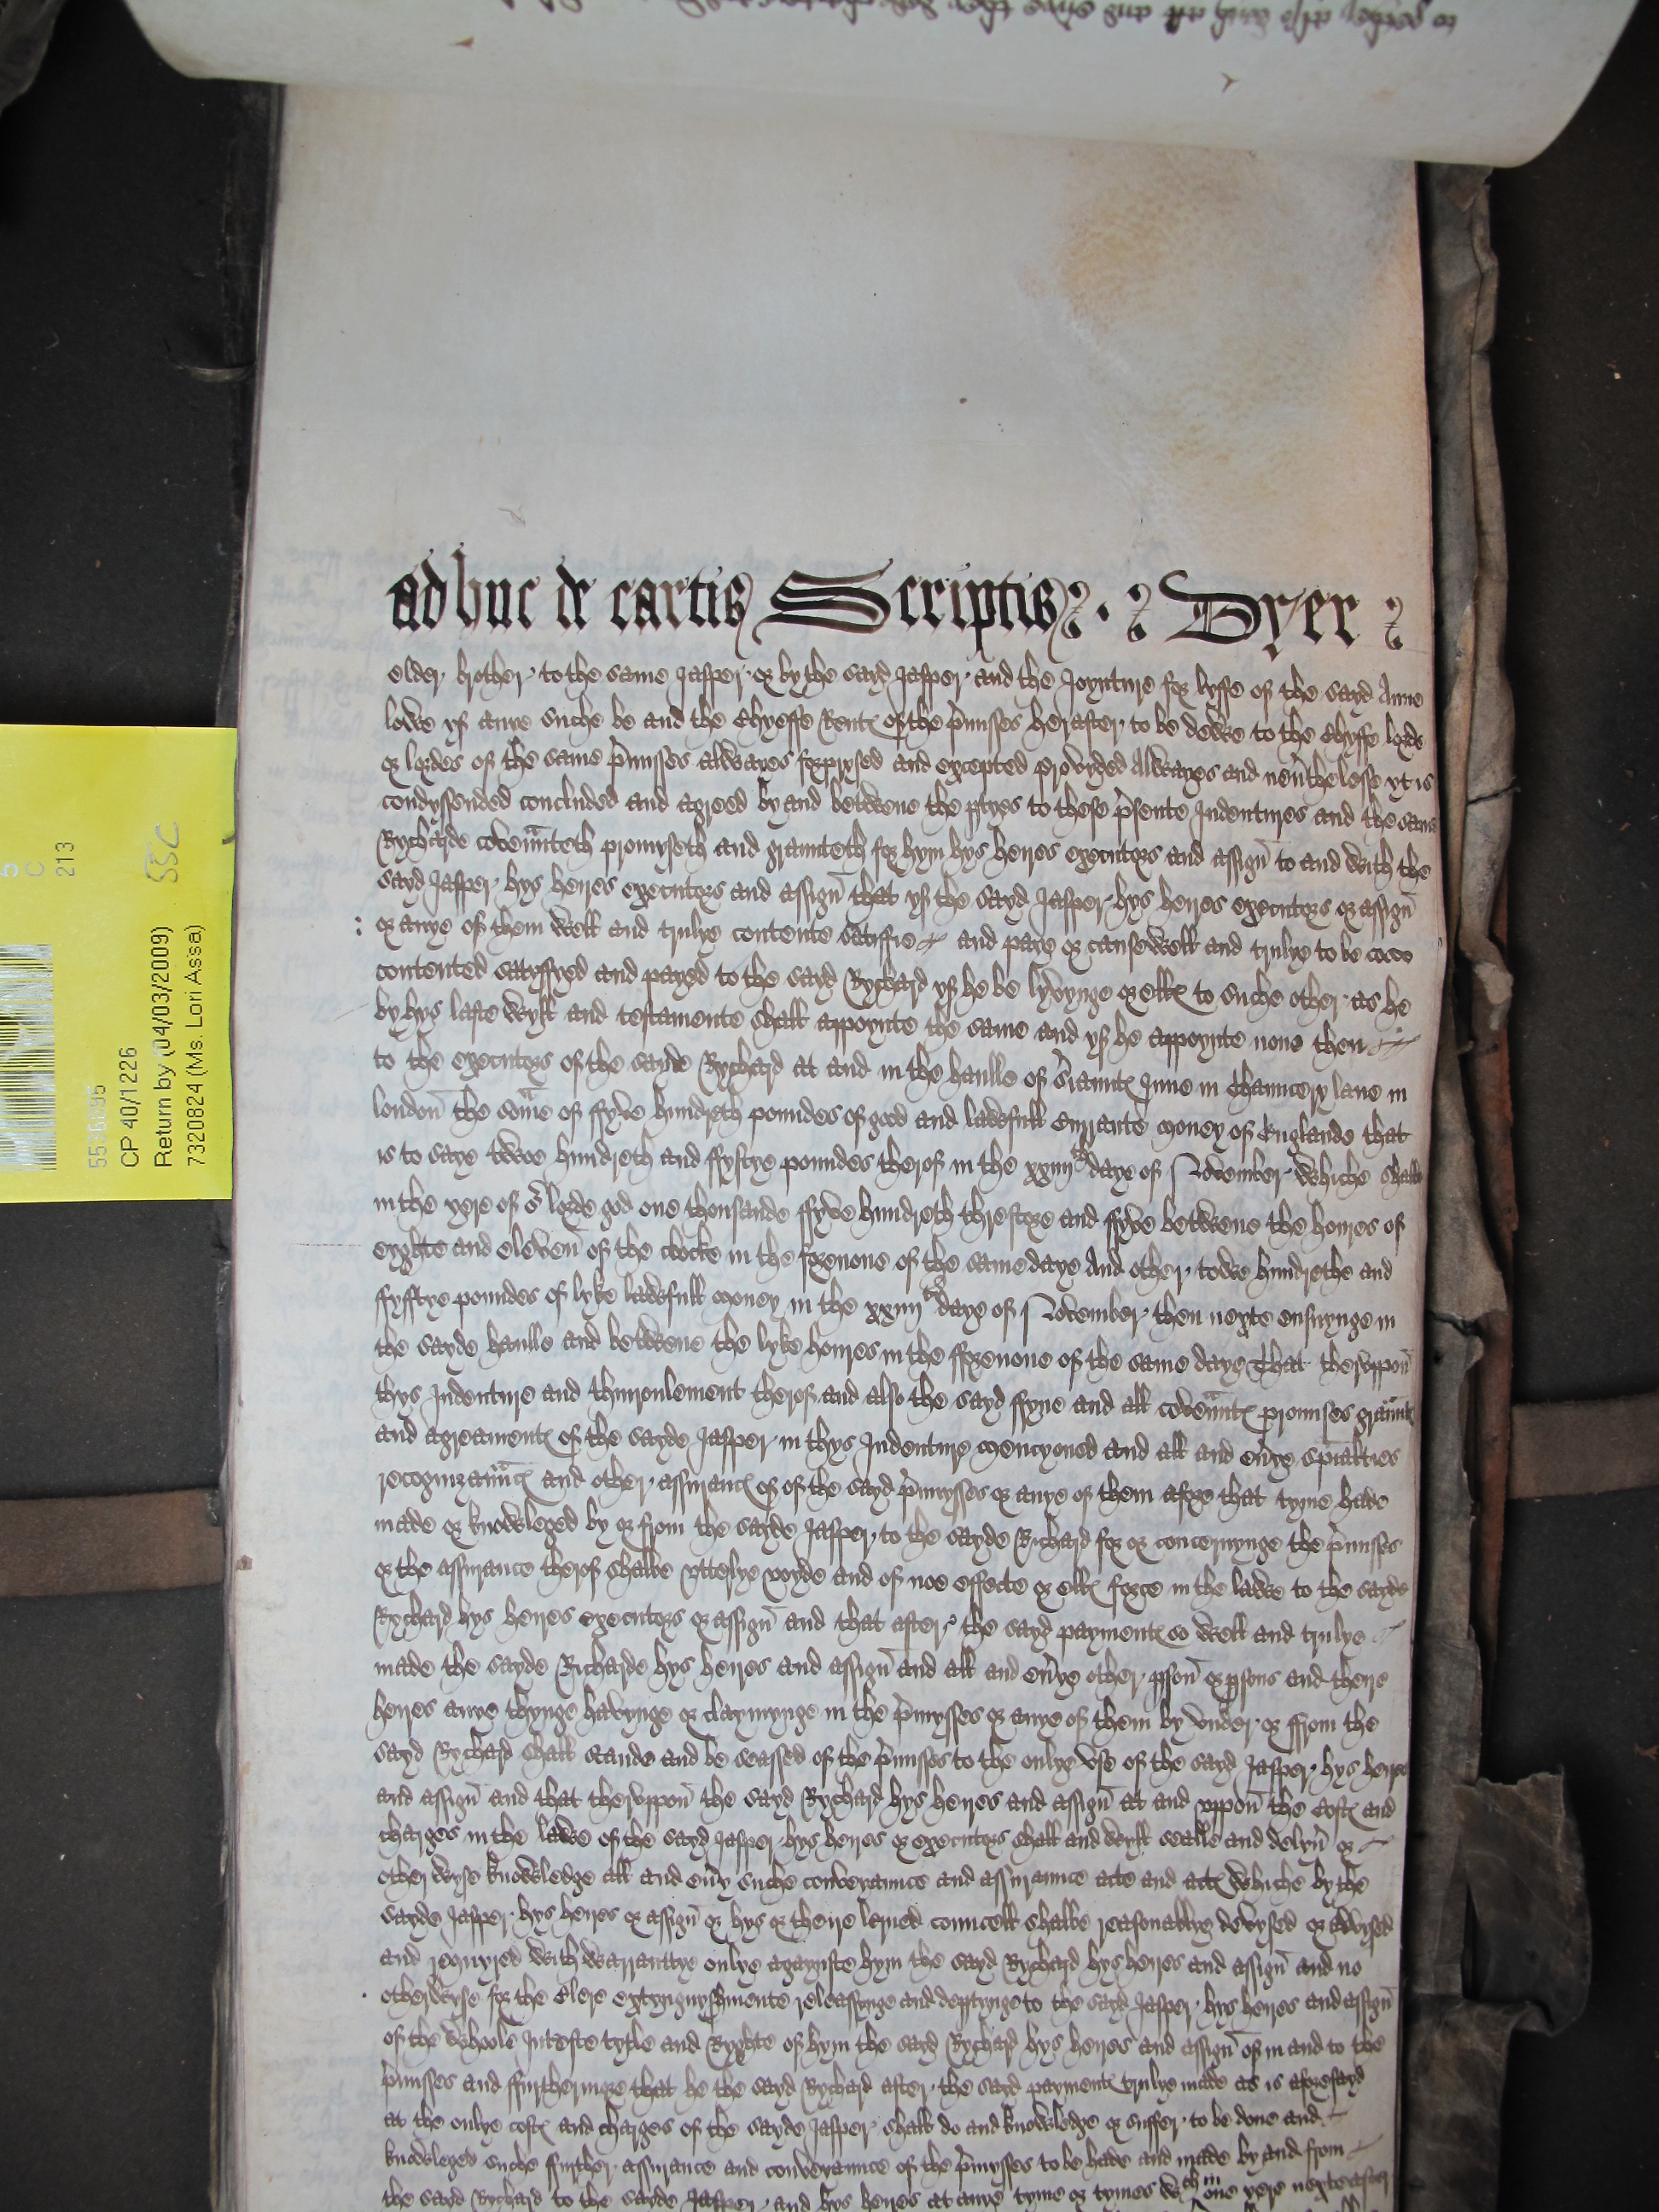 adhuc de cartis Scriptis Dyer
elder brother to the same Jasper or by the sayd Jasper and the Joynture for lyffe of the sayd Anne
lowe yf anye suche be and the Chyeffe Rent of the pmisses herafter to be dewe to the Chyffe lorde
or lordes of the same pmisses alwayes forprysed and excepted provyded Alwayes and nevthelesse yt is
condyssended concluded and agreed by and betwene the ptyes to these psente Indentures and the same
Rycharde covennteth promyseth and graunteth for hym hys heires executors and assign to and with the
sayd Jasper hys heires executors and assign that yf the sayd Jasper hys heires executors or assign
or anye of them well and trulye contente satisfie and paye or cause well and trulye to be
contented satysfyed and payed to the sayd Rychard yf he be lyvynge or ells to suche other as he
by hys laste wyll and testamente shall appoynte the same and yf he appoynte none then
to the executors of the sayde Rychard at and in the haulle of Inne in Chauncery lane in
london the some of ffyve hundreth poundes of good and lawfull Currante money of Englande that
is to saye twoe hundreth and ffyftye poundes therof in the xxiiijth daye of November whiche shalbe
in the yere of or lorde god one thousande ffyve hundreth threscore and ffyve betwene the houres of
eyghte and eleven of the clocke in the forenone of the same daye And other towe hundrethe and
ffyfftye poundes of lyke lawfull money in the xxiiijth daye of November then nexte ensuynge in
the sayde haulle and betwene the lyke houres in the fforenone of the same daye That theruppon
thys Indenture and thinroulement therof and also the sayd ffyne and all covennts promises graunts
and agreaments of the sayde Jasper in thys Indenture mencyoned and all and evye spialties
recognizauncs and other assurancs of the sayd pmysses or anye of them afore that tyme hade
made or knowleged by or from the sayde Jasper to the sayde Richard for or concernynge the pmisses
or the assurance therof shalbe vtterlye voyde and of noe effecte or ells force in the lawe to the sayde
Rychard hys heires executors or assign and that after the sayd payments so well and trulye
made the sayde Richarde hys heires and assign and all and evye other pson or psons and there
heires anye thynge havynge or claymynge in the pmysses or anye of them by vnder or ffrom the
sayd Rychard shall stande and be seassed of the pmisses to the onlye vse of the sayd Jasper hys heires
and assign and that theruppon the sayd Rychard hys heires and assign at and vppon the costs and
charges in the lawe of the sayd Jasper hys heires or executors shall and wyll sealle and delyv or
other wyse knowledge all and evy suche conveyaunce and assuraunce acte and acts whiche by the
sayde Jasper hys heires or assign or hys or theire lerned councell shalbe reasonablye devysed or advysed
and requyred with warrauttye onlye agaynste hym the sayd Rychard hys heires and assign and no
otherwyse for the Clere extynguyshmente releassynge and deptynge to the sayd Jasper hys heires and assign
of the whoole Intreste tytle and Ryghte of hym the sayd Rychard hys heires and assign of in and to the
pmisses and ffurthermore that he the sayd Rychard after the sayd payments trulye made as is aforesayd
at the onlye costs and charges of the sayde Jasper shall do and knowledge or suffer to be done and
knowleged suche ffurther assurance and conveyaunce of the pmysses to be hade and made by and from
the sayd Rychard to the sayde Jasper and hys heires at anye tyme or tymes wthin one yere nexte after
5
C
213
SSC
CP 40/1226
Return by (04/03/2009)
7320824 (Ms. Lori Assa)